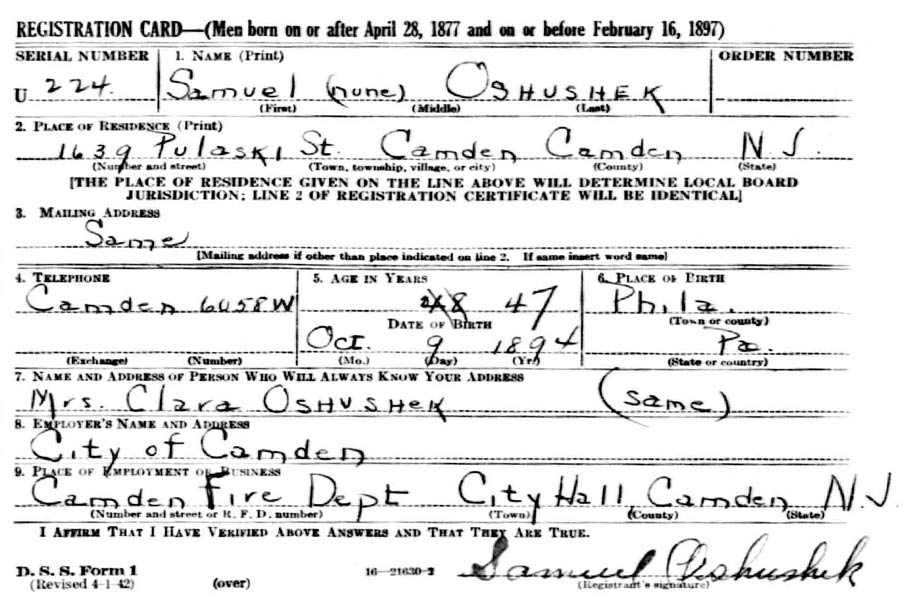 REGISTRATION CARD—(Men born on or after April 28, 1877 and on or before February 16, 1897)
SERIAL NUMBER 1. NAME (Print) ORDER NUMBER
U 224. Samuel (none) OSHUSHEK
(First) (Middle) (Last)
2. PLACE OF RESIDENCE (Print)
1639 Pulaski St. Camden Camden N.J.
(Number and street) (Town, township, village, or city) (County) (State)
[THE PLACE OF RESIDENCE GIVEN ON THE LINE ABOVE WILL DETERMINE LOCAL BOARD
JURISDICTION; LINE 2 OF REGISTRATION CERTIFICATE WILL BE IDENTICAL]
3. MAILING ADDRESS
Same
[Mailing address if other than place indicated on line 2. If same insert word same]
4. TELEPHONE 5. AGE IN YEARS 6. PLACE OF BIRTH
Camden 6058W 48 47 Phila.
DATE OF BIRTH (Town or county)
Oct. 9 1894 Pa.
(Exchange) (Number) (Mo.) (Day) (Yr.) (State or country)
7. NAME AND ADDRESS OF PERSON WHO WILL ALWAYS KNOW YOUR ADDRESS
Mrs. Clara OSHUSHEK (same)
8. EMPLOYER'S NAME AND ADDRESS
City of Camden
9. PLACE OF EMPLOYMENT OR BUSINESS
Camden Fire Dept City Hall, Camden N.J.
(Number and street or R. F. D. number) (Town) (County) (State)
I AFFIRM THAT I HAVE VERIFIED ABOVE ANSWERS AND THAT THEY ARE TRUE.
D. S. S. Form 1 16—21630-2 Samuel Oshushek
(Revised 4-1-42) (over) (Registrant's signature)